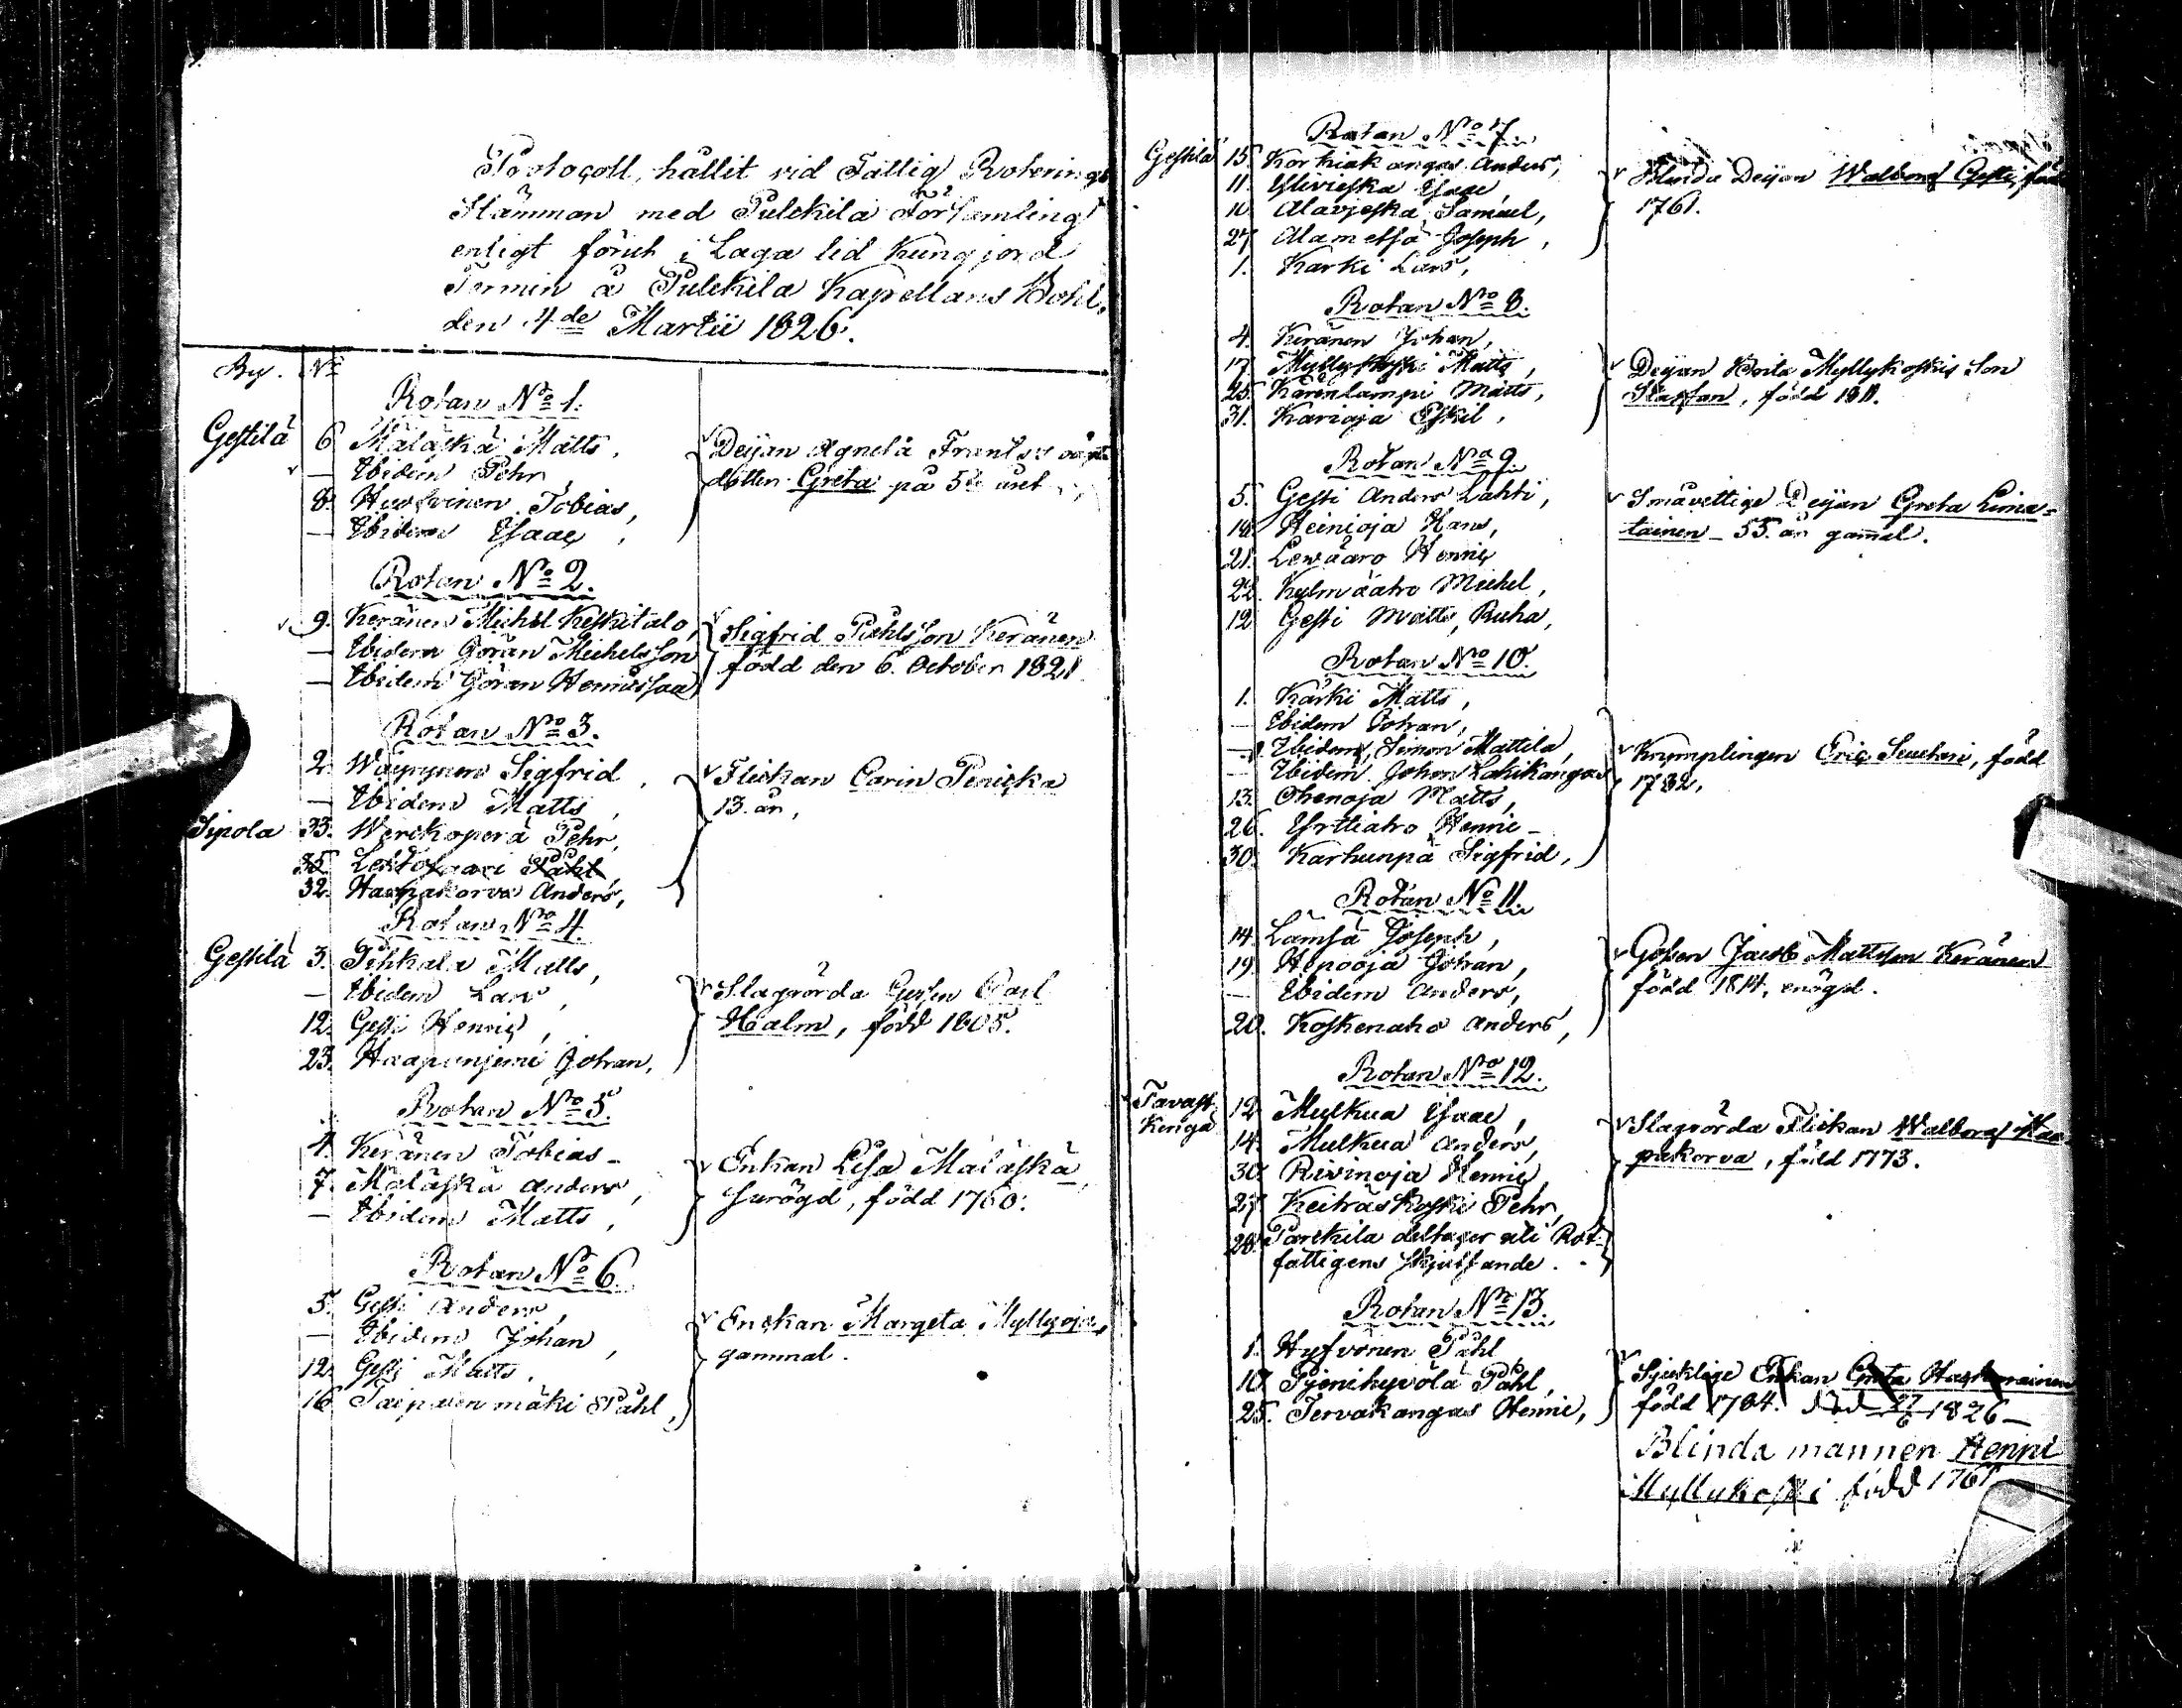 Protocoll, hållit vid Fattig Roterings
Stämman med Pulckila Församling
enligt förut i Laga tid kungjord
Termin å Pulckila Kapellans Bohl.
den 4de Martii 1826.
By. No
Rotan No 1.
Gestilä 6 Mäläskä Matts,
— Ibidem Pehr
8. Tobias,
— Ibidem Isaac,
Deijan Agneta
dotter Greta på 5te året
Rotan No 2.
9. Keränen Michel Keskitalo,
— Ibidem Göran Michelsson
— Ibidem Göran Henricsson
Sigfrid Påhlsson Keränen
född den 6. October 1821.
Rotan No 3.
2. Wäyrynen Sigfrid,
— Ibidem Matts,
Sipola 33. Werckoperä Pehr,
35. Påhl,
32. Haapakorva Anders,
Flickan Carin Penicka
13. år,
Rotan No 4.
Gestilä 3. Pihkala Matts,
— Ibidem Lars,
12. Gesti Henric,
23. Haapaniemi Johan,
Slagrörda Gossen Carl
Halm, född 1805.
Rotan No 5.
4. Keränen Tobias –
7. Mäläskä Anders,
— Ibidem Matts,
Enkan Lisa Mäläskä,
surögd, född 1760.
Rotan No 6.
5. Gesti Anders,
— Ibidem Johan,
12. Gesti Matts,
16 Taipaleenmäki Påhl,
Enckan Margeta Myllyoja,
gammal.
Rotan No 7.
Gestilä 15. Korkiakangas Anders,
11. Ylivieska Isaac
10. Alavieska Samuel,
27. Alametsä Joseph,
1. Kärki Lars,
Blinda Deijan Walborg Gesti, född
1761.
Rotan No 8.
4. Keränen Johan,
17. Myllykoski Matts,
25. Kärenlampi Matts,
31. Karioja Eskil,
Deijan Brita Myllykoskis Son
Staffan, född 1811.
Rotan No 9.
5. Gesti Anders Lahti,
18. Heinioja Hans,
21. Lewäaro Henric
22. Kylmäaho Michel,
12 Gesti Matts, Ruha,
Småvettige Deijan Greta Lima=
tainen – 55. år gammal.
Rotan No 10.
1. Kärki Matts,
— Ibidem Johan,
— Ibidem, Simon Mattila,
— Ibidem Johan Lakikangas
13. Ohenoja Matts,
26. Yrttiaho Henric –
30. Karhunpä Sigfrid,
Krymplingen Eric, född
1782,
Rotan No 11.
14. Lämsä Joseph,
19. Hepooja Johan,
— Ibidem Anders,
20. Koskenaho Anders,
Gossen Jacob Mattsson Keränen
född 1814, enögd.
Rotan No 12.
Tavast
Kenga
12 Mulkua Isaac,
14. Mulkua Anders,
30. Rivinoja Henric,
27. Keiträskoski Pehr,
28. Parckila deltager uti Rot=
fattigens skjutsande.
Slagrörda Flickan Walborg Haa
pakorva, född 1773.
Rotan No 13.
1. Hyfvönen Påhl
10. Påhl,
25. Tervakangas Henric,
Sjucklige Enkan Greta
född 1764. död 27/6 1826 –
Blinda mannen Henric
Myllykoski född 1761